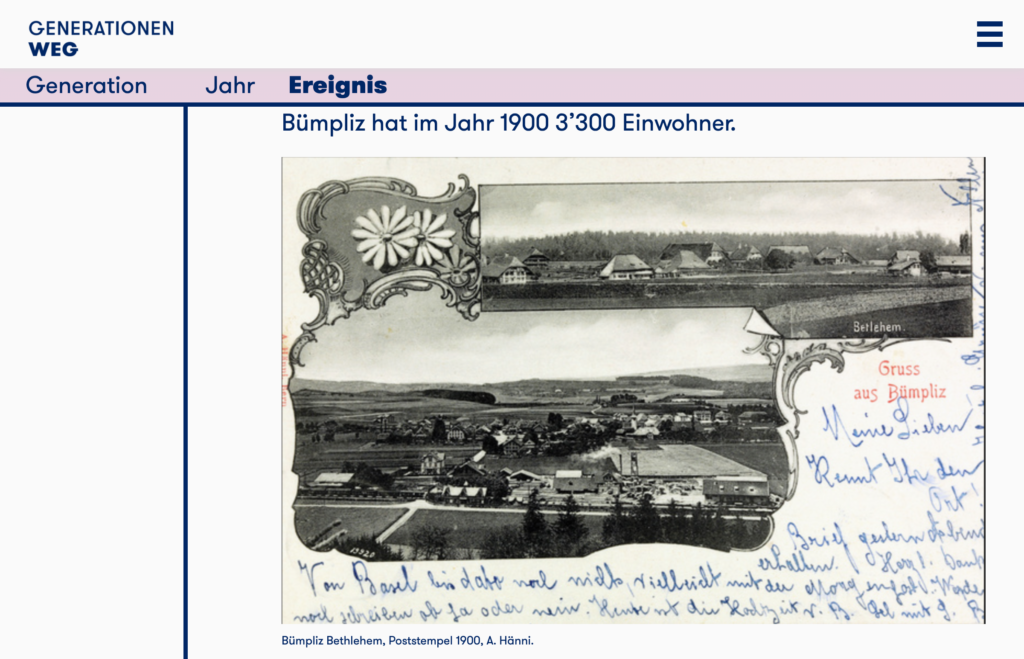 GENERATIONEN
WEG
Generation Jahr Ereignis
Bümpliz hat im Jahr 1900 3’300 Einwohner.
Betlehem
Gruss
aus Bümpliz
Meine Lieben!
Kennt Ihr den
Ort!
Brief gestern Abend
erhalten. Herzl. Dank
Von Basel bis dato noch nichts, vielleicht mit der Morgenpost. Werde
noch schreiben ob ja oder nein. Heute ist die Hochzeit v. B.
Bümpliz Bethlehem, Poststempel 1900, A. Hänni.